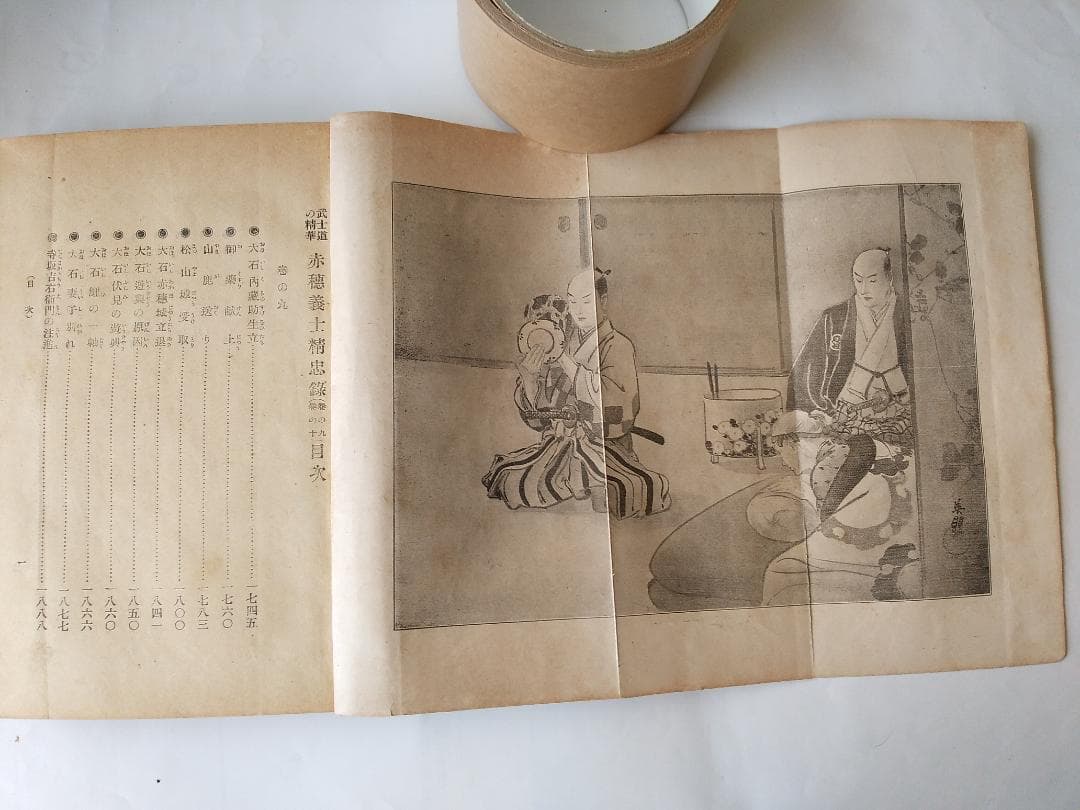 武士道の精華 赤穂義士精忠錄(巻の九 巻の十)目次
巻の九
◉大石內藏助生立……一七四五
◉御藥献上……一七六〇
◉山鹿送り……一七八三
◉松山城受取……一八〇〇
◉大石赤穂城立退……一八四一
◉大石遊興の原因……一八五〇
◉大石伏見の遊興……一八六〇
◉大石鯉の一軸……一八六六
◉大石妻子別れ……一八七七
◉寺坂吉右衛門の注進……一八八八
(目次)
一